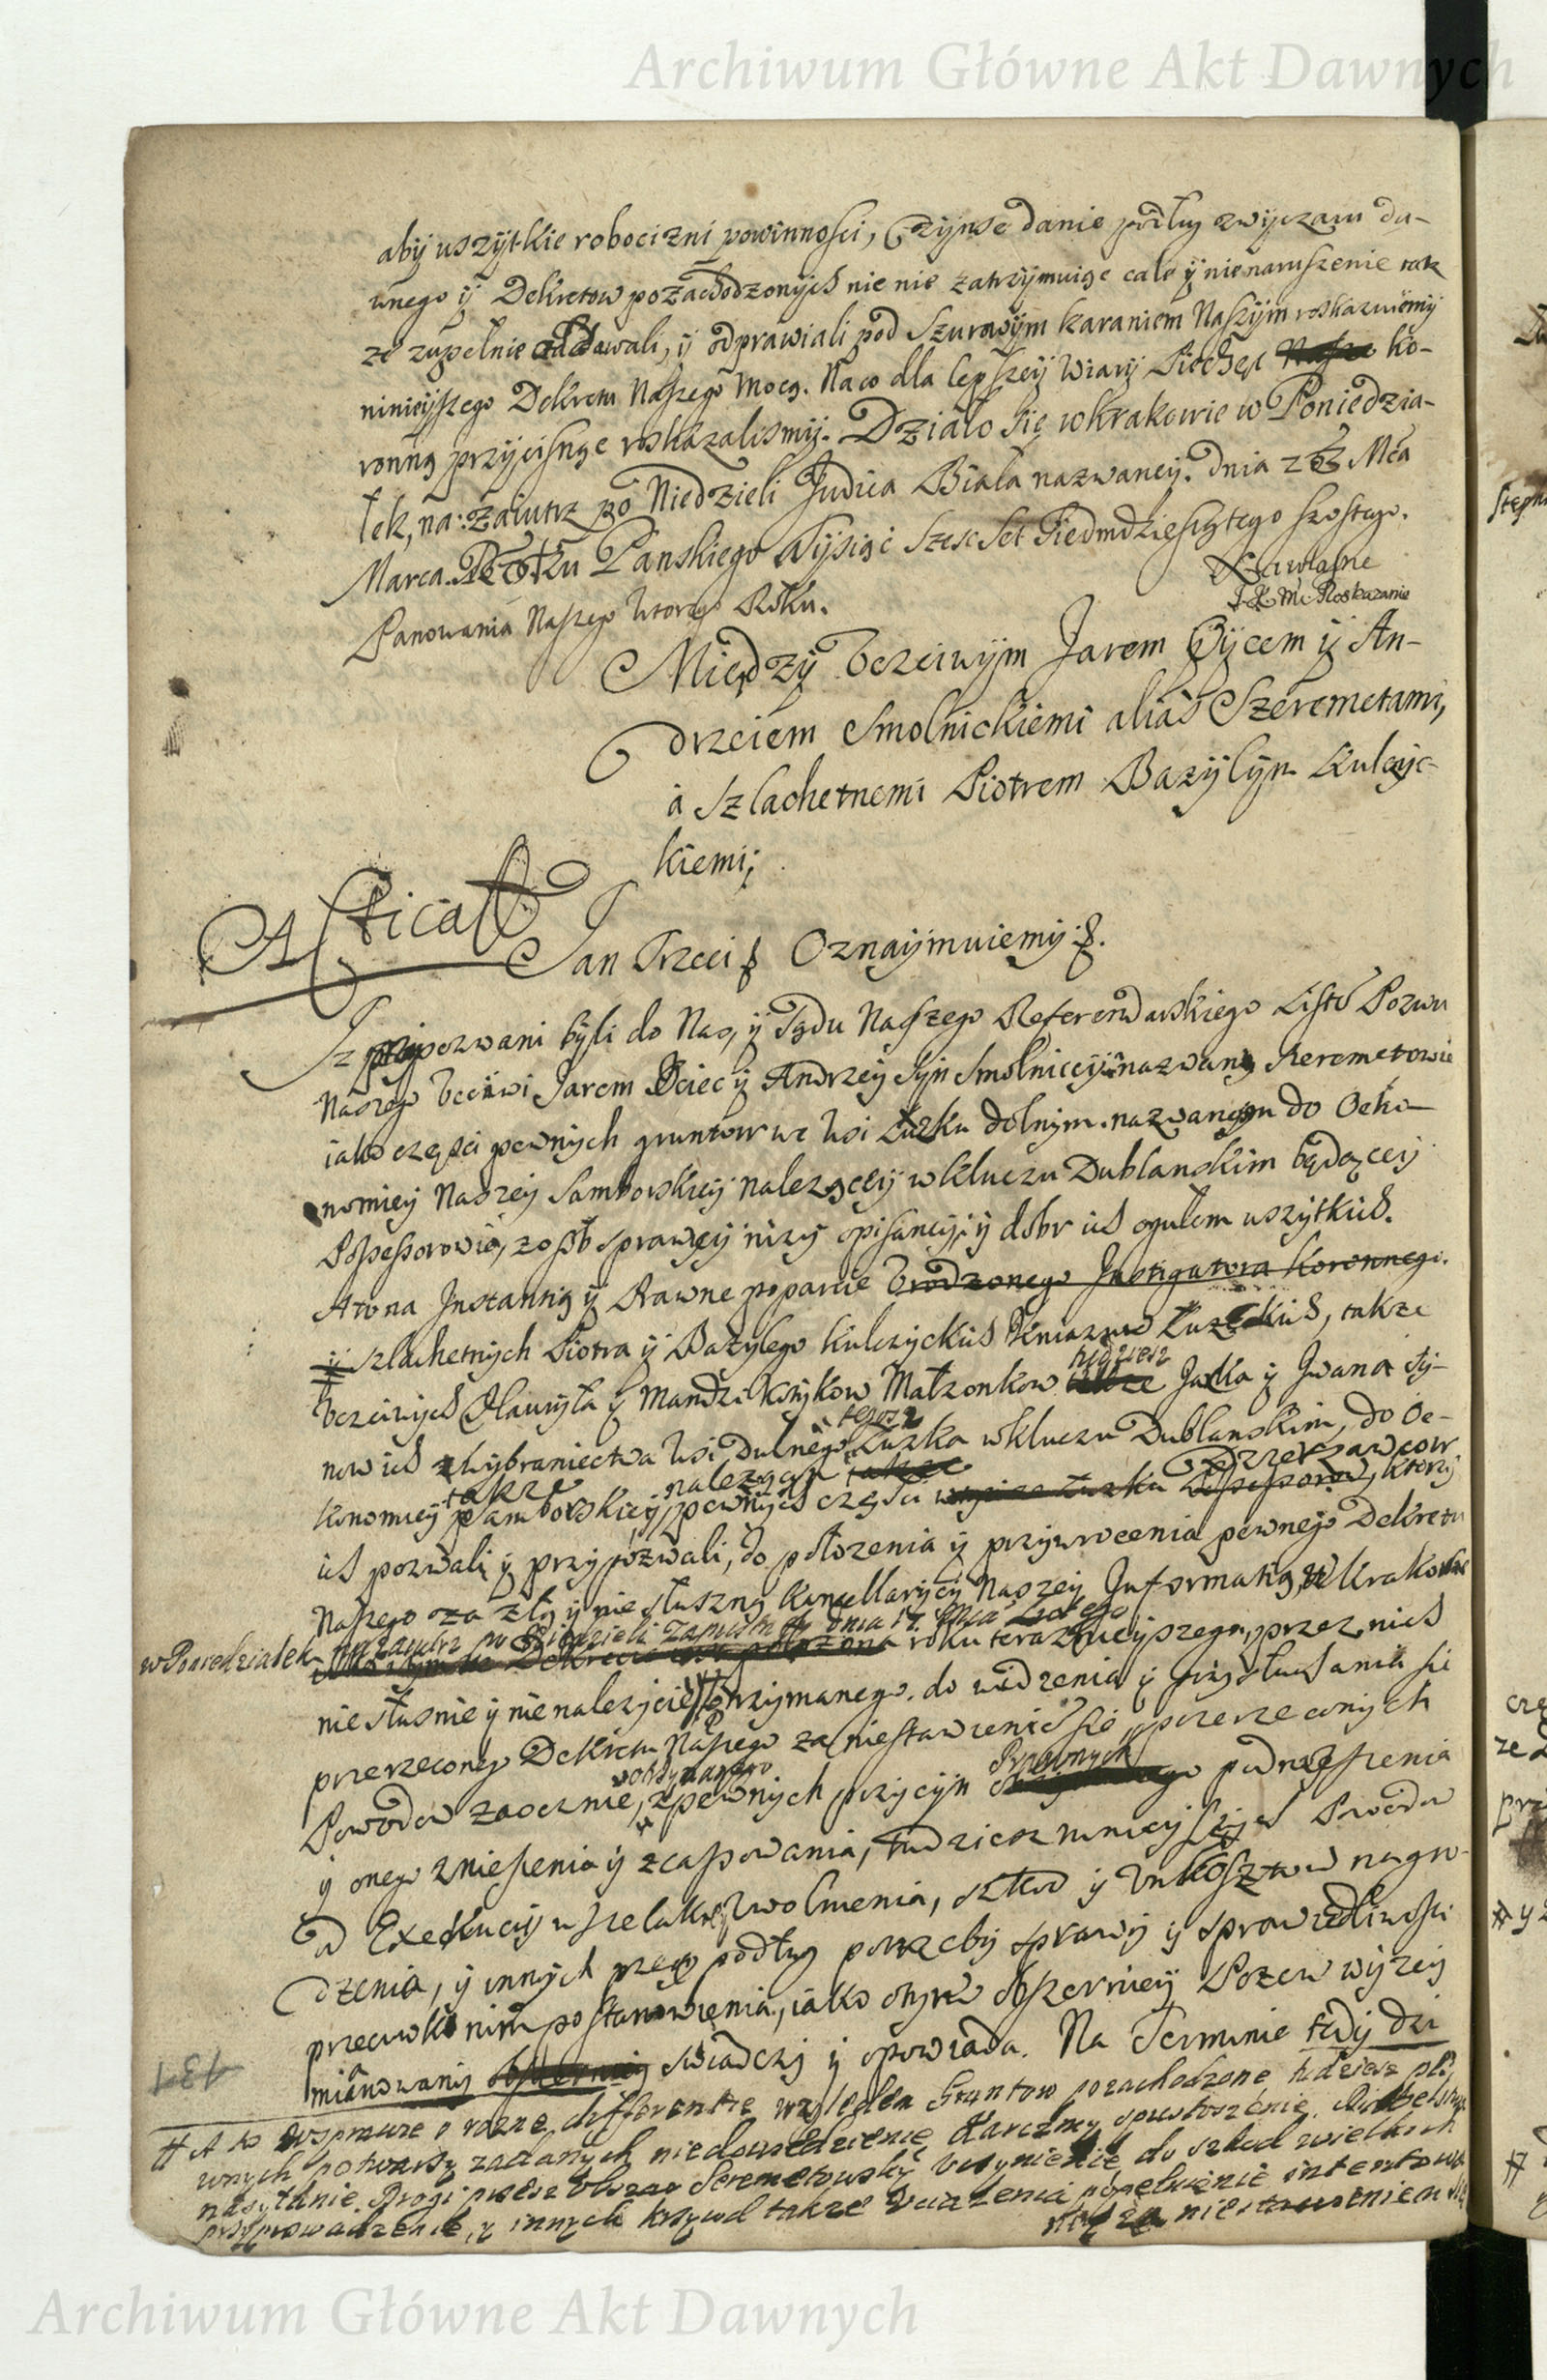 Archiwum Główne Akt Dawnych
aby uszytkie robocizni powinnosci, Czynse danie podług zwyczaiu da-
wnego y Dekretow pozachodzonych nic nie zatrzymuiąc cale y nienaruszenie tak
ze zupełnie oddawali, y odprawiali pod Szurowym karaniem Naszym roskazuiemy
ninieyszego Dekretu Naszego mocą. Na co dla lepszey Wiary Pieczęć ko-
ronną przycisnąc roskazalismy. Działo się w Krakowie w Poniedzia-
łek, na zaiutrz po Niedzieli Judica Biała nazwaney. dnia Mca
Marca. Roku Panskiego Tysiąc Szesc Set Siedmdziesiątego szostego.
Panowania Naszego wtorego Roku.
Na własne
J K Mci Roskazanie
Między Uczciwym Jarem Oycem y An-
drzeiem Smolnickiemi alias Szeremetami,
a Szlachetnemi Piotrem Bazylym Kulczyc-
kiemi;
Jan Trzeci Oznaymuiemy.
Iz przypozwani byli do Nas, y Sądu Naszego Referendarskiego Listē Pozwu
Naszego Uczciwi Jarem Ociec y Andrzey Syn Smolniccy nazwany Seremetowie
iako części pewnych gruntow we wsi Łuzku dolnym nazwanym do Oeko-
nomiey Naszey Samborskiey nalezącey w kluczu Dublanskim będącey
Possessorowie, z osob sprawcy nizy opisaney y dobr ich ogułem uszytkich.
A to na Instantią y Prawne poparcie Urodzonego Instigatora Koronnego.
y szlachetnych Piotra y Bazylego Kulczyckich Kniaziow Łuzeckich, takze
Uczciwych Hawryła y Mandzi Kosykow Małzonkow tudziesz Jacka y Iwana Sy-
now ich z wybraniectwa wsi Dulnego tegosz Łuzka w kluczu Dublanskim, do Oe-
konomiey Samborskiey nalezącym takze pewnych części Dzierzawcow, ktorzy
ich pozwali y przypozwali, do połozenia y przywrocenia pewnego Dekretu
Naszego za złą y nie słuszną Kancellaryey Naszey Informatią, w Krakowie
w Poniedziałek nazaiutrz po Niedzieli Zapustney dnia 17. Mca Lutego roku teraznieyszego, przez nich
niesłusnie y nienalezycie otrzymanego. do widzenia y przysłuchania się
przerzeczonego Dekretu Naszego za niestawieniem się przerzeczonych
Powodow zaocznie otrzymanego, z pewnych przyczyn Prawnych podniessienia
y onego zniesienia y zcassowania, tudziesz ninieyszych Powodow
od Exekucij wszelakiey uwolnienia, szkod y Unkosztow nagro-
dzenia, y innych rzeczy podług potrzeby sprawy y sprawiedliwosci
przeciwko nim postanowienia, iako onych obszerniey Pozew wyzey
mianowany swiadczy y opowiada. Na Terminie tedy dzi
131
# A to wspmuze o rozne differentie względem Gruntow pozachodzone tudziesz
wnych potwarzy zadanych niedowiedzienie Karczmy spustoszenie,
nasytanie Drogi przesz Obszar Seremetowsky Uczynienie do szkod wielkich
przyprowadzenie, y innych krzywd takze Urazenia popełnienie intentowa
niestawieniem się
Archiwum Główne Akt Dawnych